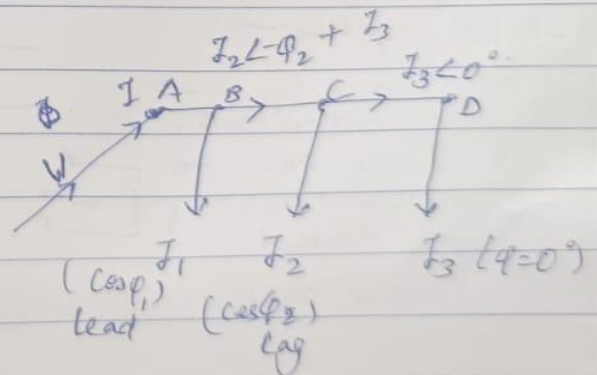 I₂∠-φ₂ + I₃
I A B C I₃∠0° D
Φ
W
I₁ I₂ I₃ (φ=0°)
(cosφ₁) lead
(cosφ₂) lag